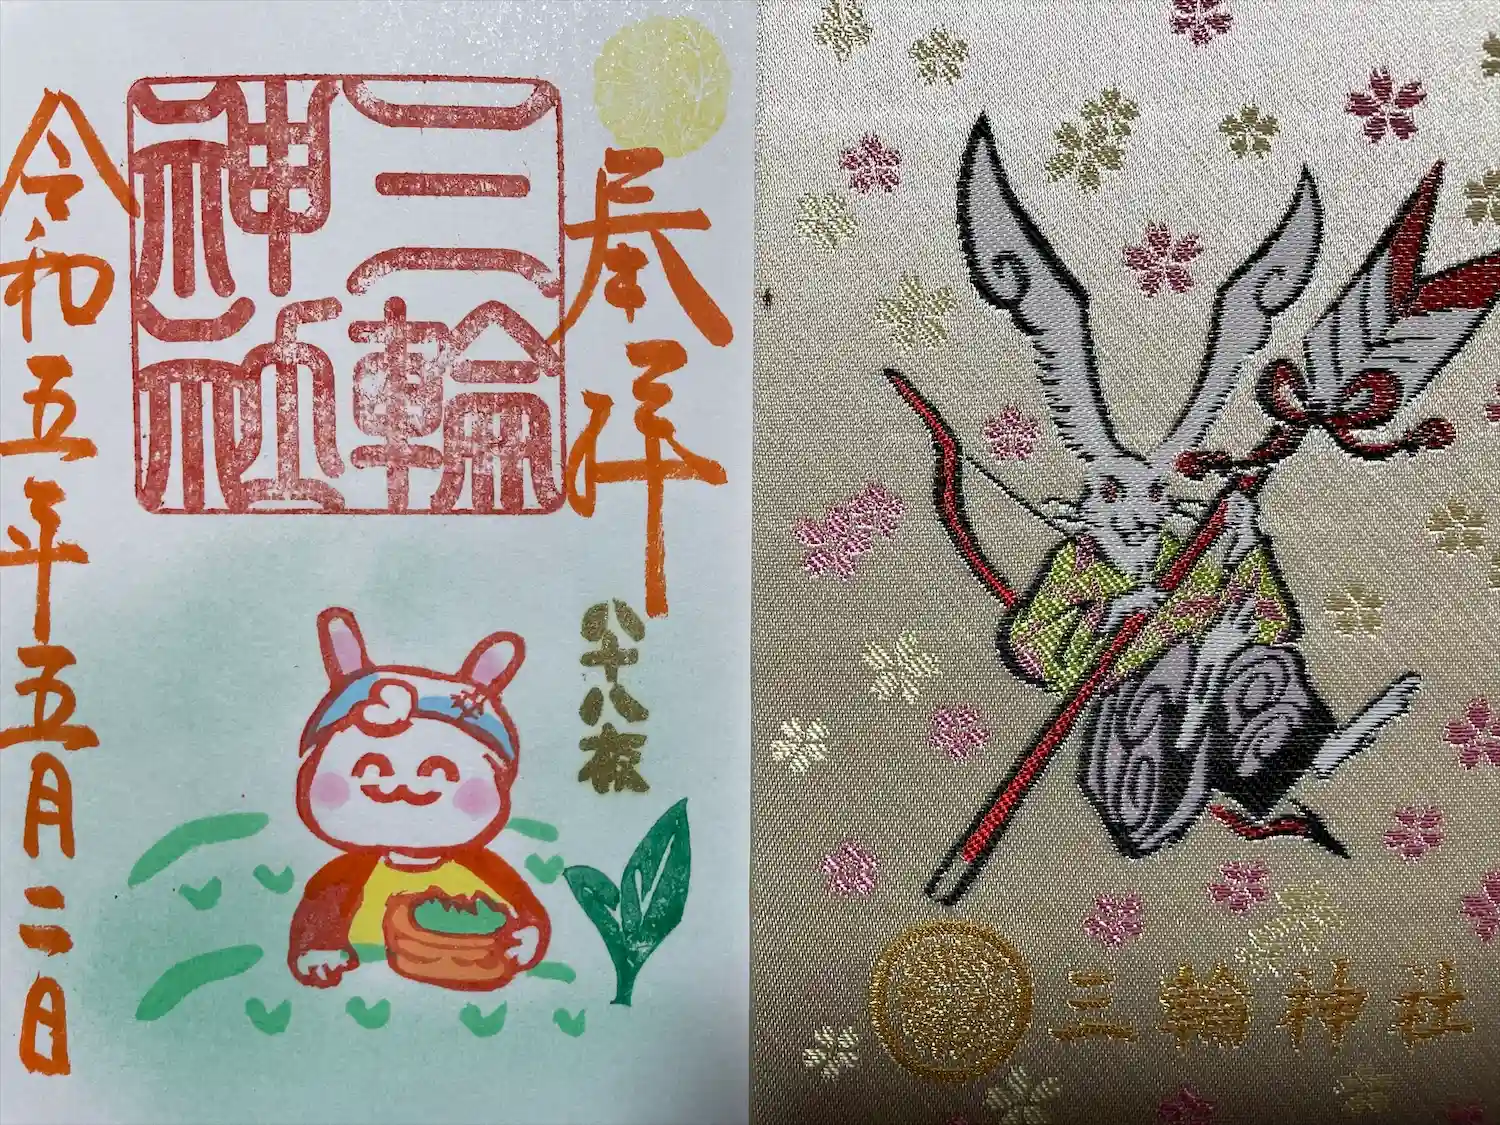 奉拝
八十八夜
三輪
神社
令和五年五月二日
三輪神社